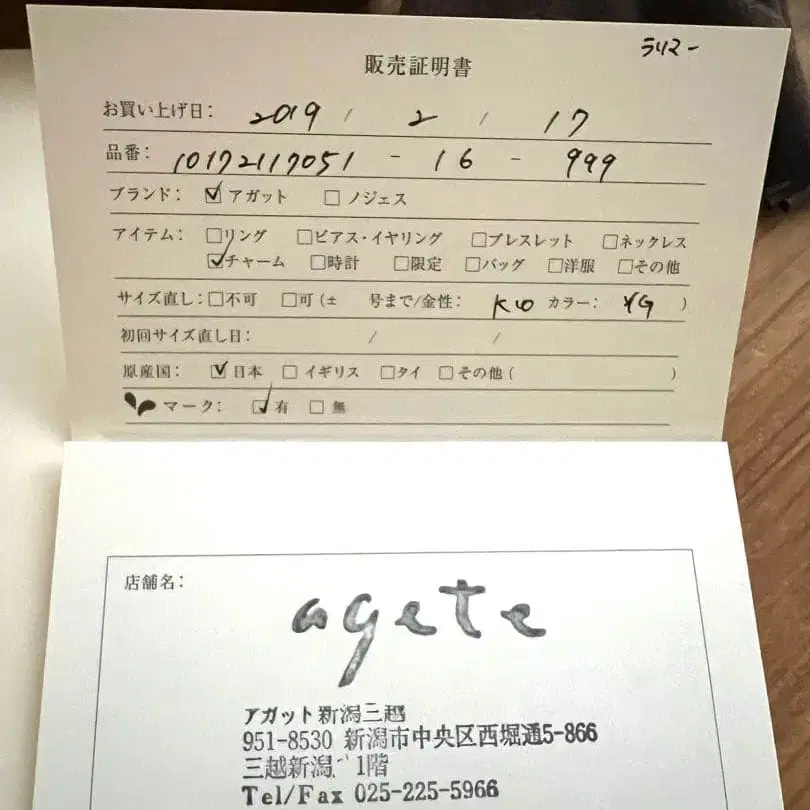 ラリマー
販売証明書
お買い上げ日: 2019 / 2 / 17
品番: 10172117051 - 16 - 999
ブランド: ☑ アガット □ ノジェス
アイテム: □リング □ピアス・イヤリング □ブレスレット □ネックレス
☑チャーム □時計 □限定 □バッグ □洋服 □その他
サイズ直し: □不可 □可(± 号まで/金性: K10 カラー: YG )
初回サイズ直し日: / /
原産国: ☑日本 □イギリス □タイ □その他( )
マーク: ☑有 □無
店舗名:
agete
アガット新潟三越
951-8530 新潟市中央区西堀通5-866
三越新潟 1階
Tel/Fax 025-225-5966